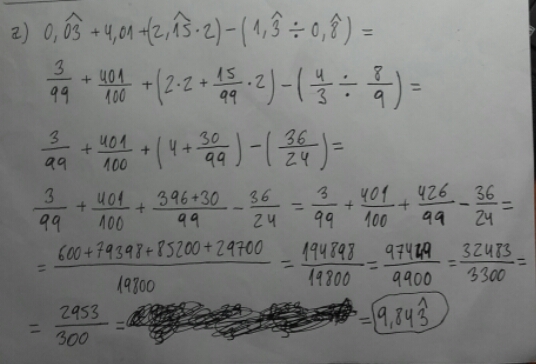 2) 0,0͡3 + 4,01 + (2,1͡5 · 2) − (1,3̂ ÷ 0,8̂) =
3/99 + 401/100 + (2·2 + 15/99 · 2) − (4/3 ÷ 8/9) =
3/99 + 401/100 + (4 + 30/99) − (36/24) =
3/99 + 401/100 + (396+30)/99 − 36/24 = 3/99 + 401/100 + 426/99 − 36/24 =
= (600+79398+85200+29700)/19800 = 194898/19800 = 97449/9900 = 32483/3300 =
= 2953/300 = = 9,843̂